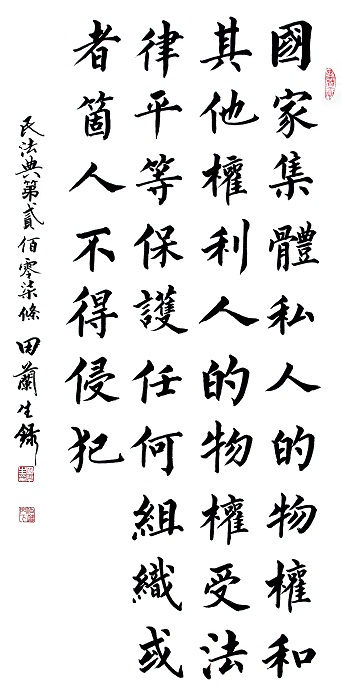 國家集體私人的物權和
其他權利人的物權受法
律平等保護任何組織或
者箇人不得侵犯
民法典第貳佰零柒條 田蘭生錄